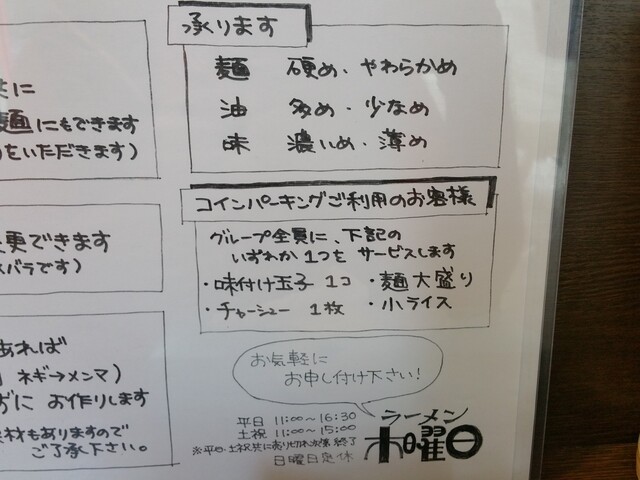 承ります
麺 硬め・やわらかめ
油 多め・少なめ
味 濃いめ・薄め
共に
麺にもできます
をいただきます)
更できます
バラです)
コインパーキングご利用のお客様
グループ全員に、下記の
いずれか1つを サービスします
・味付け玉子 1コ ・麺大盛り
・チャーシュー 1枚 ・小ライス
あれば
ネギ→メンマ)
に お作りします
材もありますので
ご了承下さい。
お気軽に
お申し付け下さい!
平日 11:00〜16:30
土祝 11:00〜15:00
※平日・土祝共に売り切れ次第終了
日曜日定休
ラーメン
木曜日